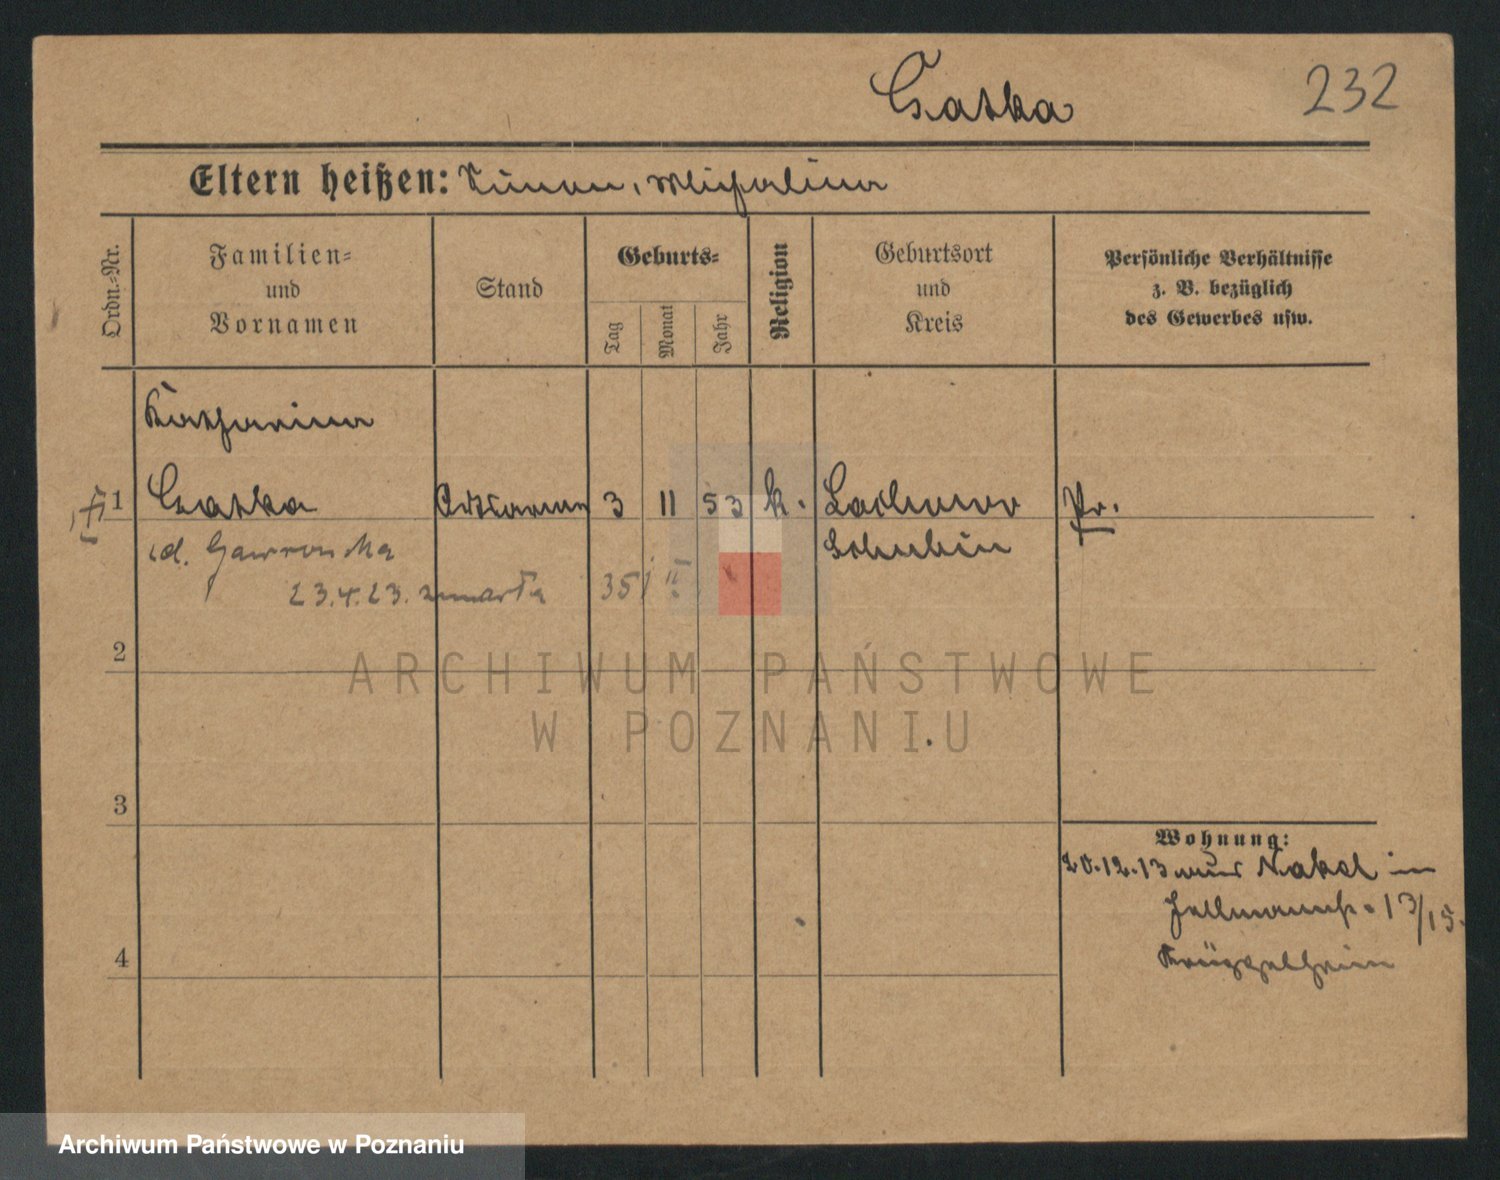 Czaska
232
Eltern heißen: Simon, Michalina
Ordn.-Nr.
Familien-
und
Vornamen
Stand
Geburts-
Tag
Monat
Jahr
Religion
Geburtsort
und
Kreis
Persönliche Verhältnisse
z. B. bezüglich
des Gewerbes usw.
Katharina
1 Czaska Ortsarme 3 11 53 k. Lachowo Pr.
id. Gawrońska Schubin
23.4.23. zmarła 35 / II
2
ARCHIWUM PAŃSTWOWE
W POZNANIU
3
Wohnung:
20.12.13 aus Nakel in
Hellmannstr. 13/15.
4
Krüppelheim
Archiwum Państwowe w Poznaniu